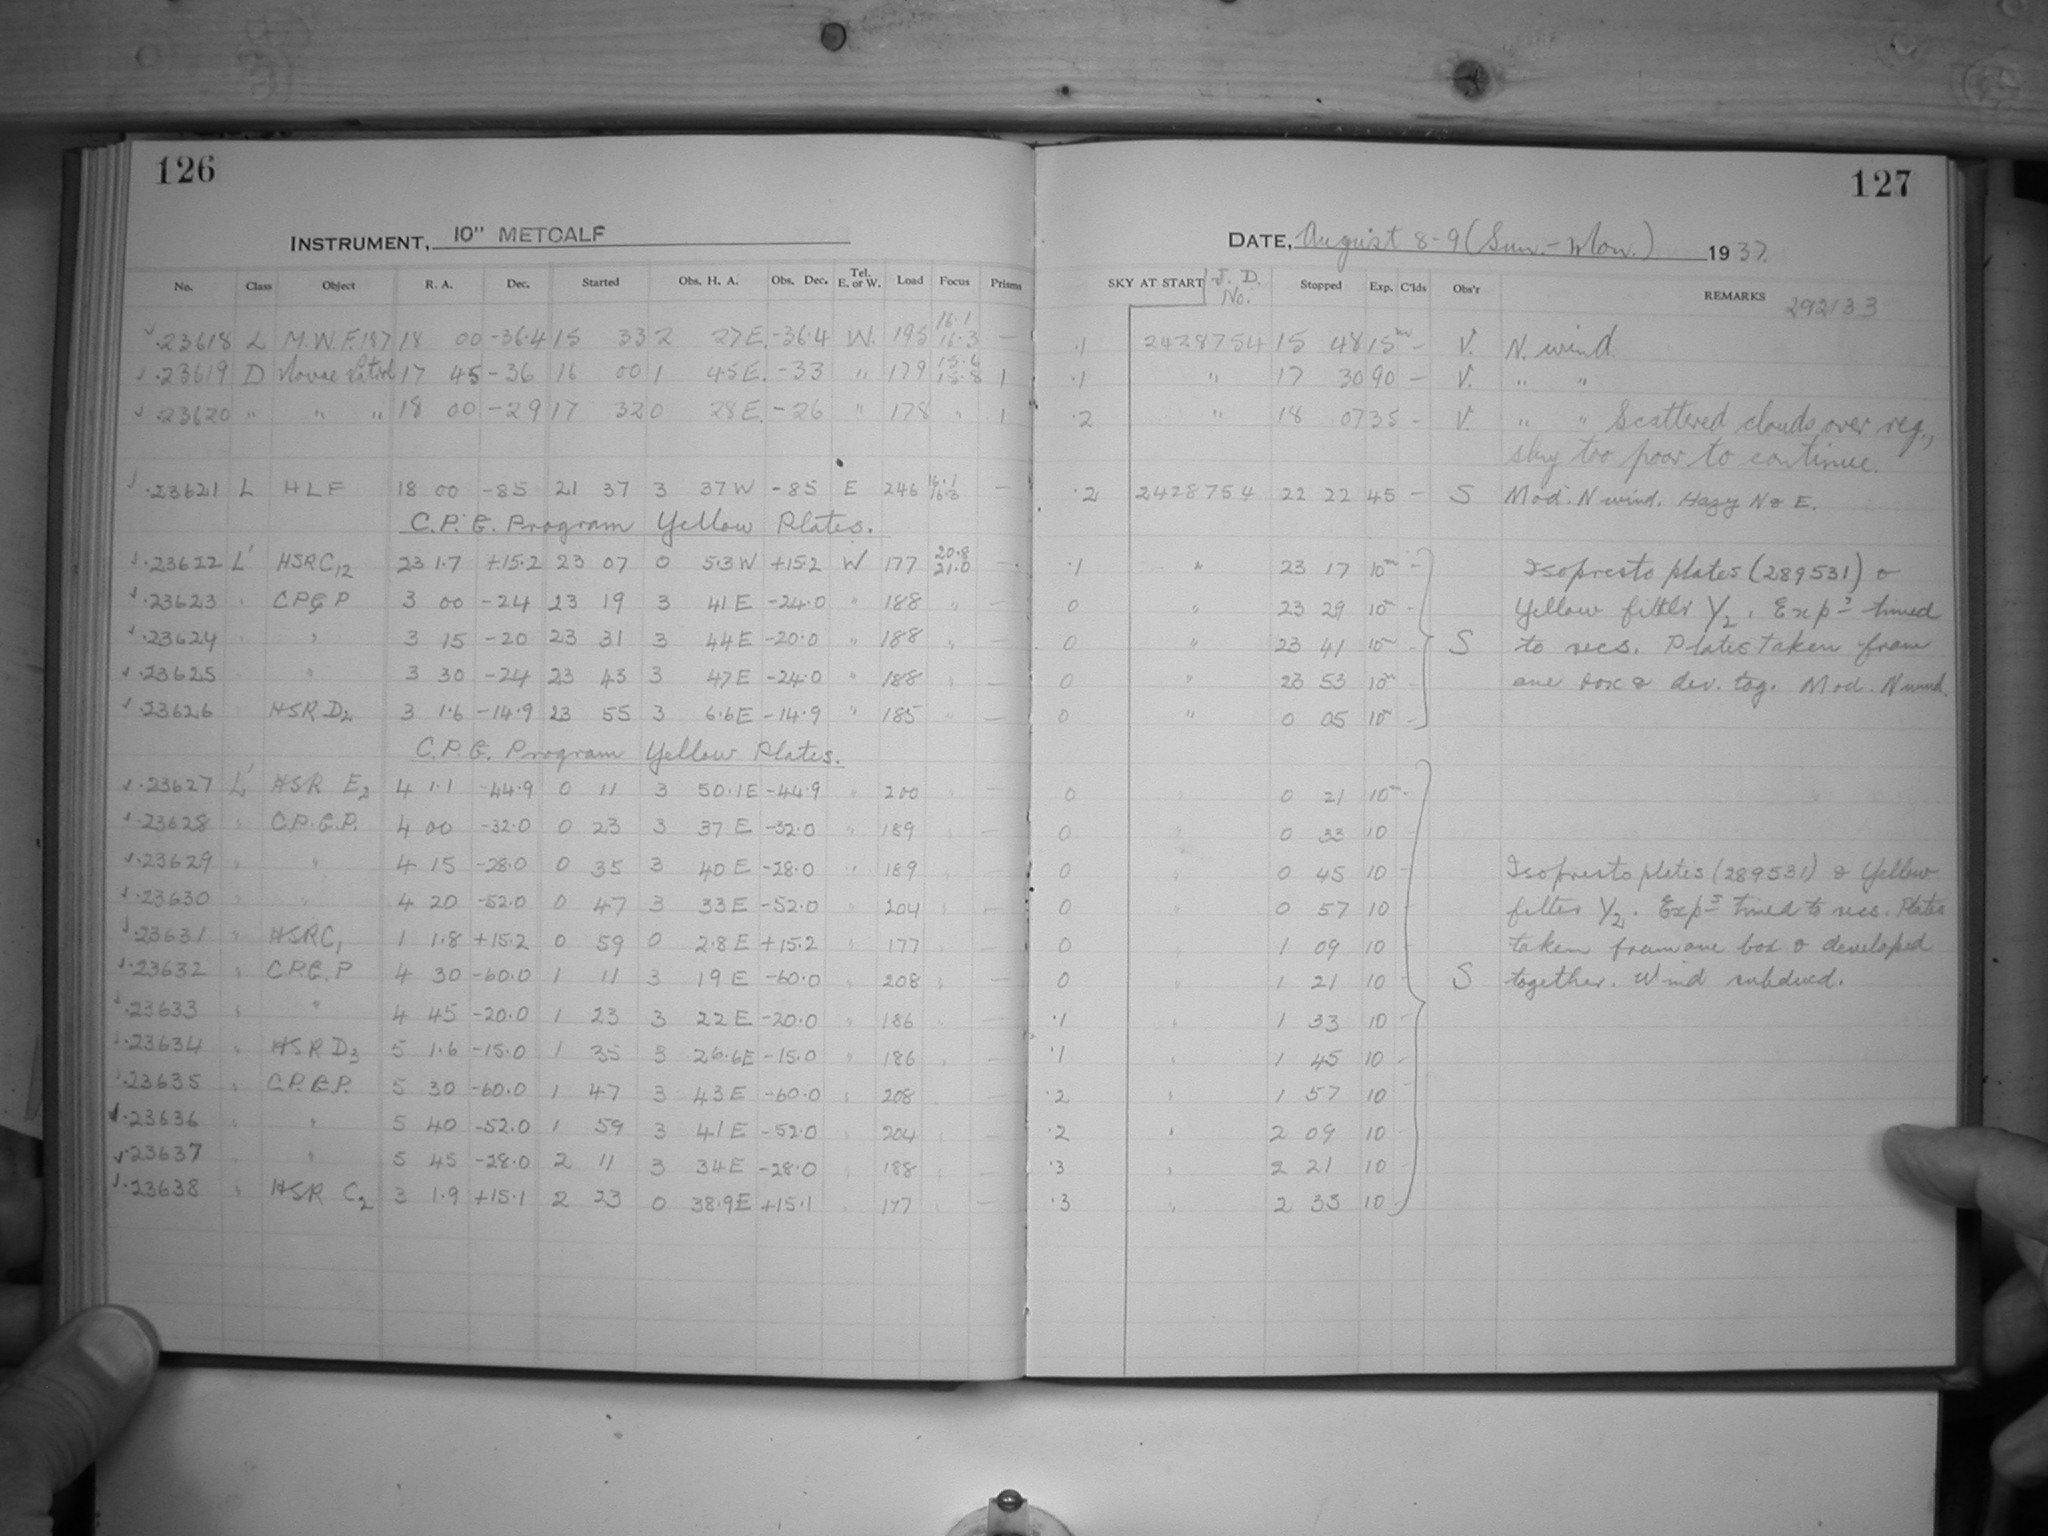 126
INSTRUMENT, 10" METCALF
No. Class Object R. A. Dec. Started Obs. H. A. Obs. Dec. Tel. E. or W. Load Focus Prisms
.23618 L M.W.F.187 18 00 -36.4 15 33 2 27 E. -36.4 W. 195 16.1 16.3 —
.23619 D Novae Patrol 17 45 -36 16 00 1 45 E. -33 " 179 15.6 15.8 1
.23620 " " " 18 00 -29 17 32 0 28 E. -26 " 178 " 1
.23621 L HLF 18 00 -85 21 37 3 37 W -85 E 246 16.1 16.3 —
C.P.G. Program Yellow Plates.
.23622 L' HSRC12 23 1.7 +15.2 23 07 0 5.3 W +15.2 W 177 20.8 21.0 —
.23623 " CPGP 3 00 -24 23 19 3 41 E -24.0 " 188 " —
.23624 " " 3 15 -20 23 31 3 44 E -20.0 " 188 " —
.23625 " " 3 30 -24 23 43 3 47 E -24.0 " 188 " —
.23626 " HSR D2 3 1.6 -14.9 23 55 3 6.6 E -14.9 " 185 " —
C.P.G. Program Yellow Plates.
.23627 L' HSR E2 4 1.1 -44.9 0 11 3 50.1 E -44.9 " 200 " —
.23628 " C.P.G.P. 4 00 -32.0 0 23 3 37 E -32.0 " 189 " —
.23629 " " 4 15 -28.0 0 35 3 40 E -28.0 " 189 " —
.23630 " " 4 20 -52.0 0 47 3 33 E -52.0 " 204 " —
.23631 " HSRC1 1 1.8 +15.2 0 59 0 2.8 E +15.2 " 177 " —
.23632 " C.P.G.P 4 30 -60.0 1 11 3 19 E -60.0 " 208 " —
.23633 " " 4 45 -20.0 1 23 3 22 E -20.0 " 186 " —
.23634 " HSR D3 5 1.6 -15.0 1 35 3 26.6 E -15.0 " 186 " —
.23635 " C.P.G.P. 5 30 -60.0 1 47 3 43 E -60.0 " 208 " —
.23636 " " 5 40 -52.0 1 59 3 41 E -52.0 " 204 " —
.23637 " " 5 45 -28.0 2 11 3 34 E -28.0 " 188 " —
.23638 " HSR C2 3 1.9 +15.1 2 23 0 38.9 E +15.1 " 177 " —
127
DATE, August 8-9 (Sun.-Mon.) 1937.
SKY AT START J. D. No. Stopped Exp. C'lds Obs'r REMARKS 292133
.1 2428754 15 48 15m — V. N. wind.
.1 " 17 30 90 — V. " "
.2 " 18 07 35 — V. " " Scattered clouds over reg.,
sky too poor to continue.
.2 2428754 22 22 45 — S Mod. N wind. Hazy N & E.
.1 " 23 17 10m — Isopresto plates (289531) &
0 " 23 29 10m — Yellow filter Y2. Exps timed
0 " 23 41 10m — S to secs. Plates taken from
0 " 23 53 10m — one box & dev. tog. Mod. N wind.
0 " 0 05 10m —
0 " 0 21 10m —
0 " 0 33 10 —
0 " 0 45 10 — Isopresto plates (289531) & Yellow
0 " 0 57 10 — filter Y2. Exps timed to secs. Plates
0 " 1 09 10 — taken from one box & developed
0 " 1 21 10 — S together. Wind subdued.
.1 " 1 33 10 —
.1 " 1 45 10 —
.2 " 1 57 10 —
.2 " 2 09 10 —
.3 " 2 21 10 —
.3 " 2 33 10 —